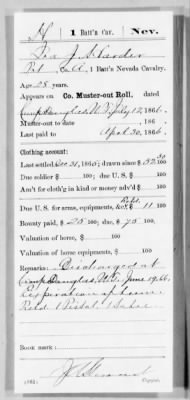 H | 1 Batt'n Cav. | Nev.
Ira J. A. Harder
Pvt., Co. A, 1 Batt'n Nevada Cavalry.
Age 28 years.
Appears on Co. Muster-out Roll, dated
Camp Douglas, U.T. July 12, 1866.
Muster-out to date , 186 .
Last paid to April 30, 1866.
Clothing account:
Last settled Dec 31, 1865; drawn since $ 52 30/100
Due soldier $ 100; due U. S. $ 100
Am't for cloth'g in kind or money adv'd $ 100
Due U. S. for arms, equipments, &c., $ 11 100
Bounty paid $ 25 100; due $ 75 100
Valuation of horse, $ 100
Valuation of horse equipments, $ 100
Remarks: Discharged at
Camp Douglas, U.T. June 19, 66.
Expiration of term.
Retd. 1 Pistol, 1 Sabre.
Book mark:
(861) Copyist.